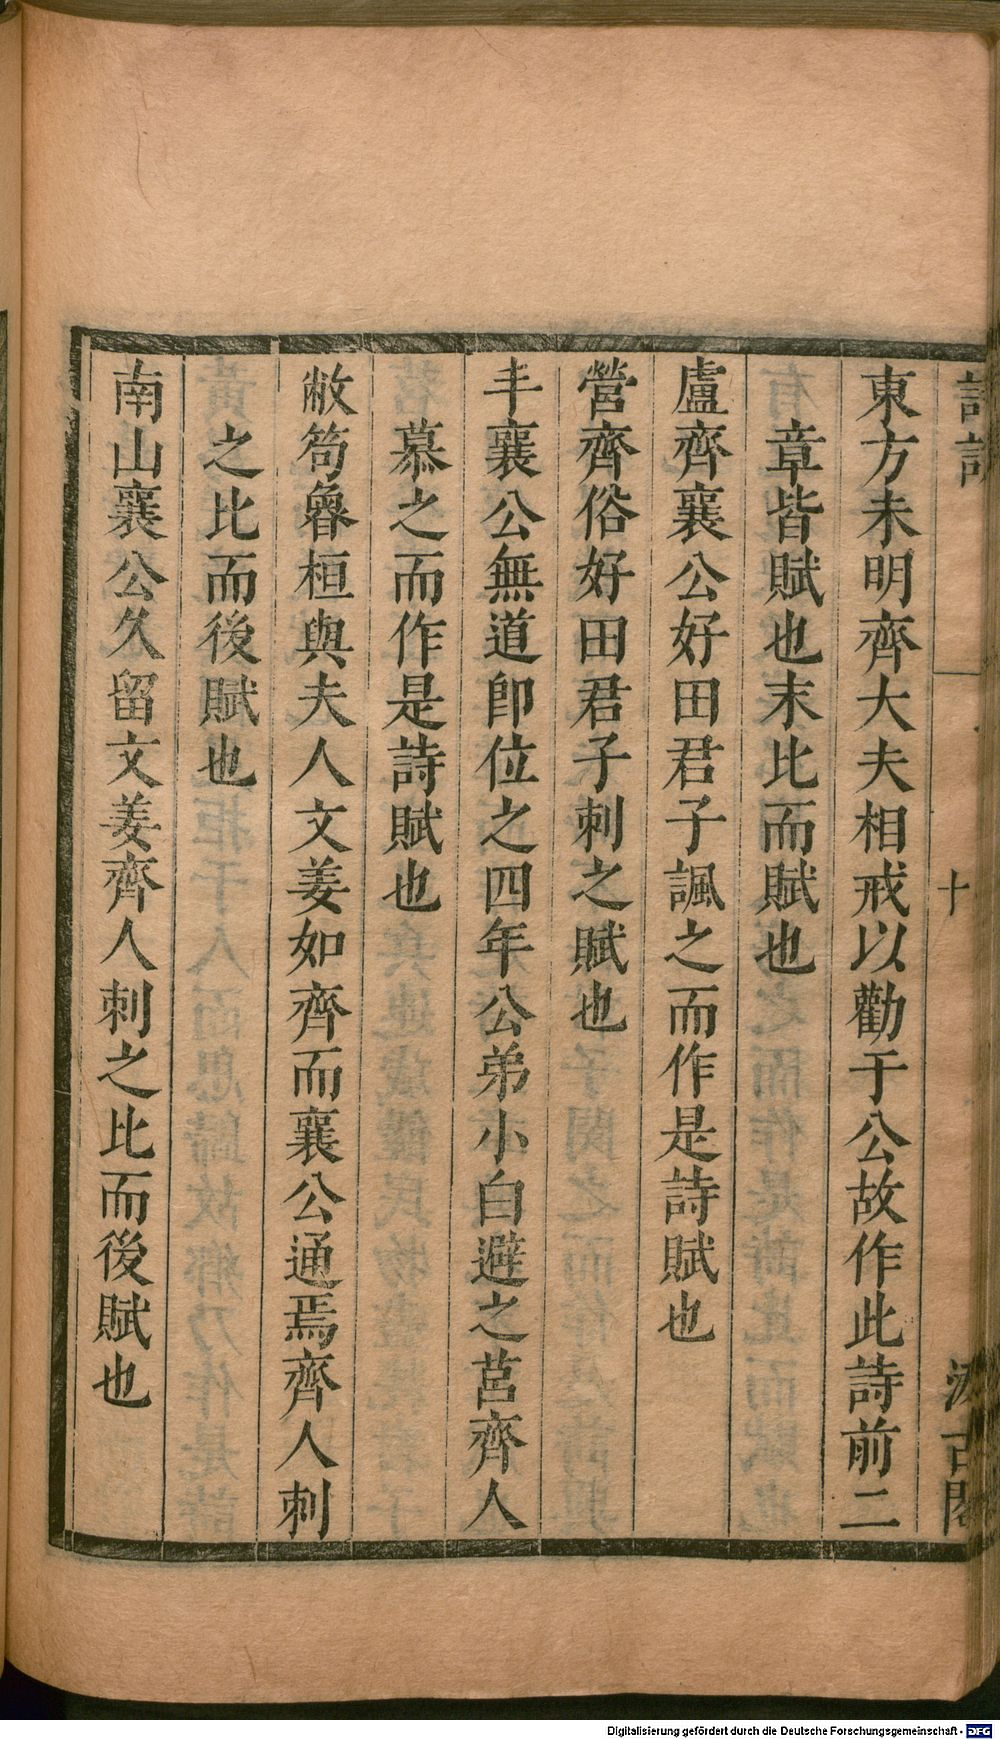 詩說
十
汲古閣
東方未明齊大夫相戒以勸于公故作此詩前二
章皆賦也末比而賦也
盧齊襄公好田君子諷之而作是詩賦也
營齊俗好田君子刺之賦也
丰襄公無道卽位之四年公弟小白避之莒齊人
慕之而作是詩賦也
敝笱魯桓與夫人文姜如齊而襄公通焉齊人刺
之比而後賦也
南山襄公久留文姜齊人刺之比而後賦也
Digitalisierung gefördert durch die Deutsche Forschungsgemeinschaft - DFG